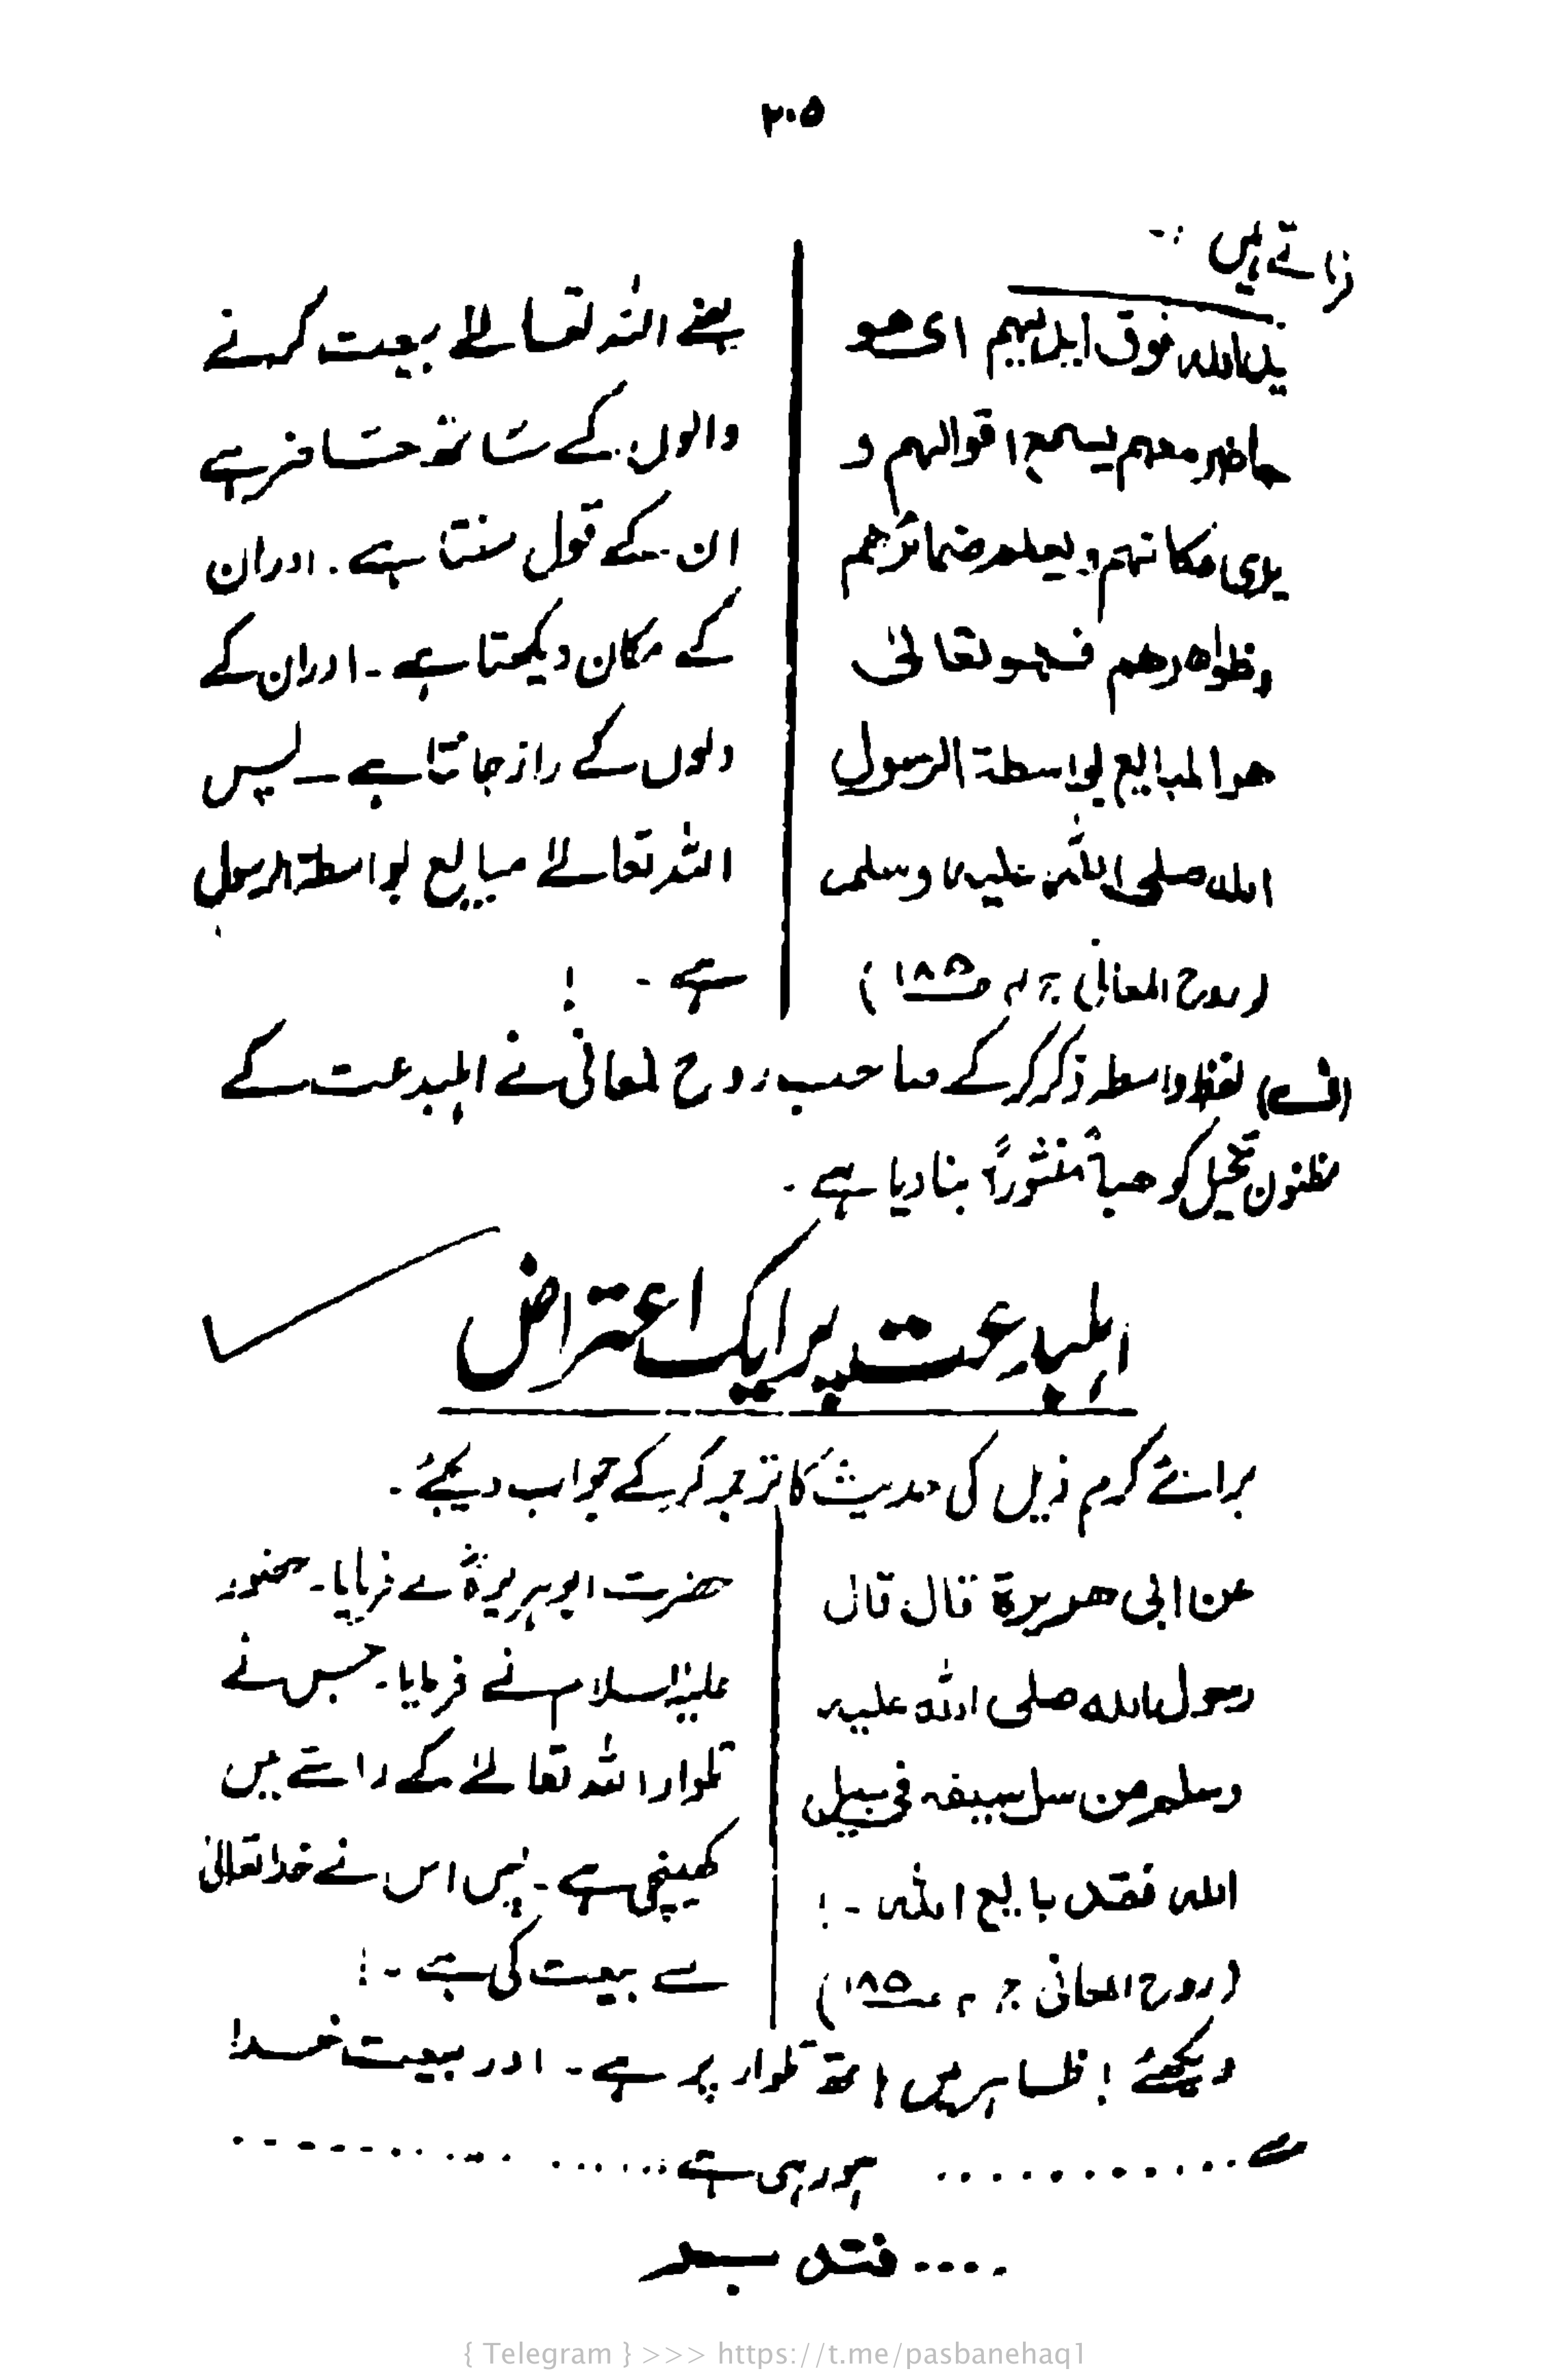 ۲۰۵
فرماتے ہیں :-
ید الله فوق ایدیهم ای هو
حاضر معهم یسمع اقوالهم و
یری مکانهم و یعلم ضمائرهم
وظواهرهم فهو تعالی
هو المبایع بواسطة الرسول
الله صلی الله علیه وسلم
(روح المعانی ج ۴ ص۱۸۵)
یعنے اللہ تعالےٰ بیعت کرنے
والوں کے ساتھ حاضر ہے
ان کے قول سنتا ہے ۔ اور ان
کے مکان دیکھتا ہے ۔ اور ان کے
دلوں کے راز جانتا ہے ۔ پس
اللہ تعالےٰ مبایع بواسطۃ الرسول
ہے ۔ !
(ف) لفظ واسطہ ذکر کر کے صاحب روح المعانی نے اہلبدعت کے
مظنون تخیل کو ھبآءً منثوراً بنا دیا ہے ۔
اہلبدعت پر ایک اعتراض
برائے کرم ذیل کی حدیث کا ترجمہ کر کے جواب دیجئے ۔
عن ابی هریرة قال قال
رسول الله صلی الله علیه
وسلم من سل سیفه فی سبیل
الله فقد بایع الله ۔ !
(روح المعانی ج ۴ ص۱۸۵)
حضرت ابوہریرہؓ سے فرمایا ۔ حضور
علیہ السلام نے فرمایا ۔ جس نے
تلوار اللہ تعالےٰ کے راستے میں
کھینچی ہے ۔ پس اس نے خدا تعالیٰ
سے بیعت کی ہے ۔ !
دیکھئے ! ظاہر میں ہاتھ تلوار پر ہے ۔ اور بیعت خدا
سے ............ ہو رہی ہے ...............
.... فتدبر
{ Telegram } >>> https://t.me/pasbanehaq1